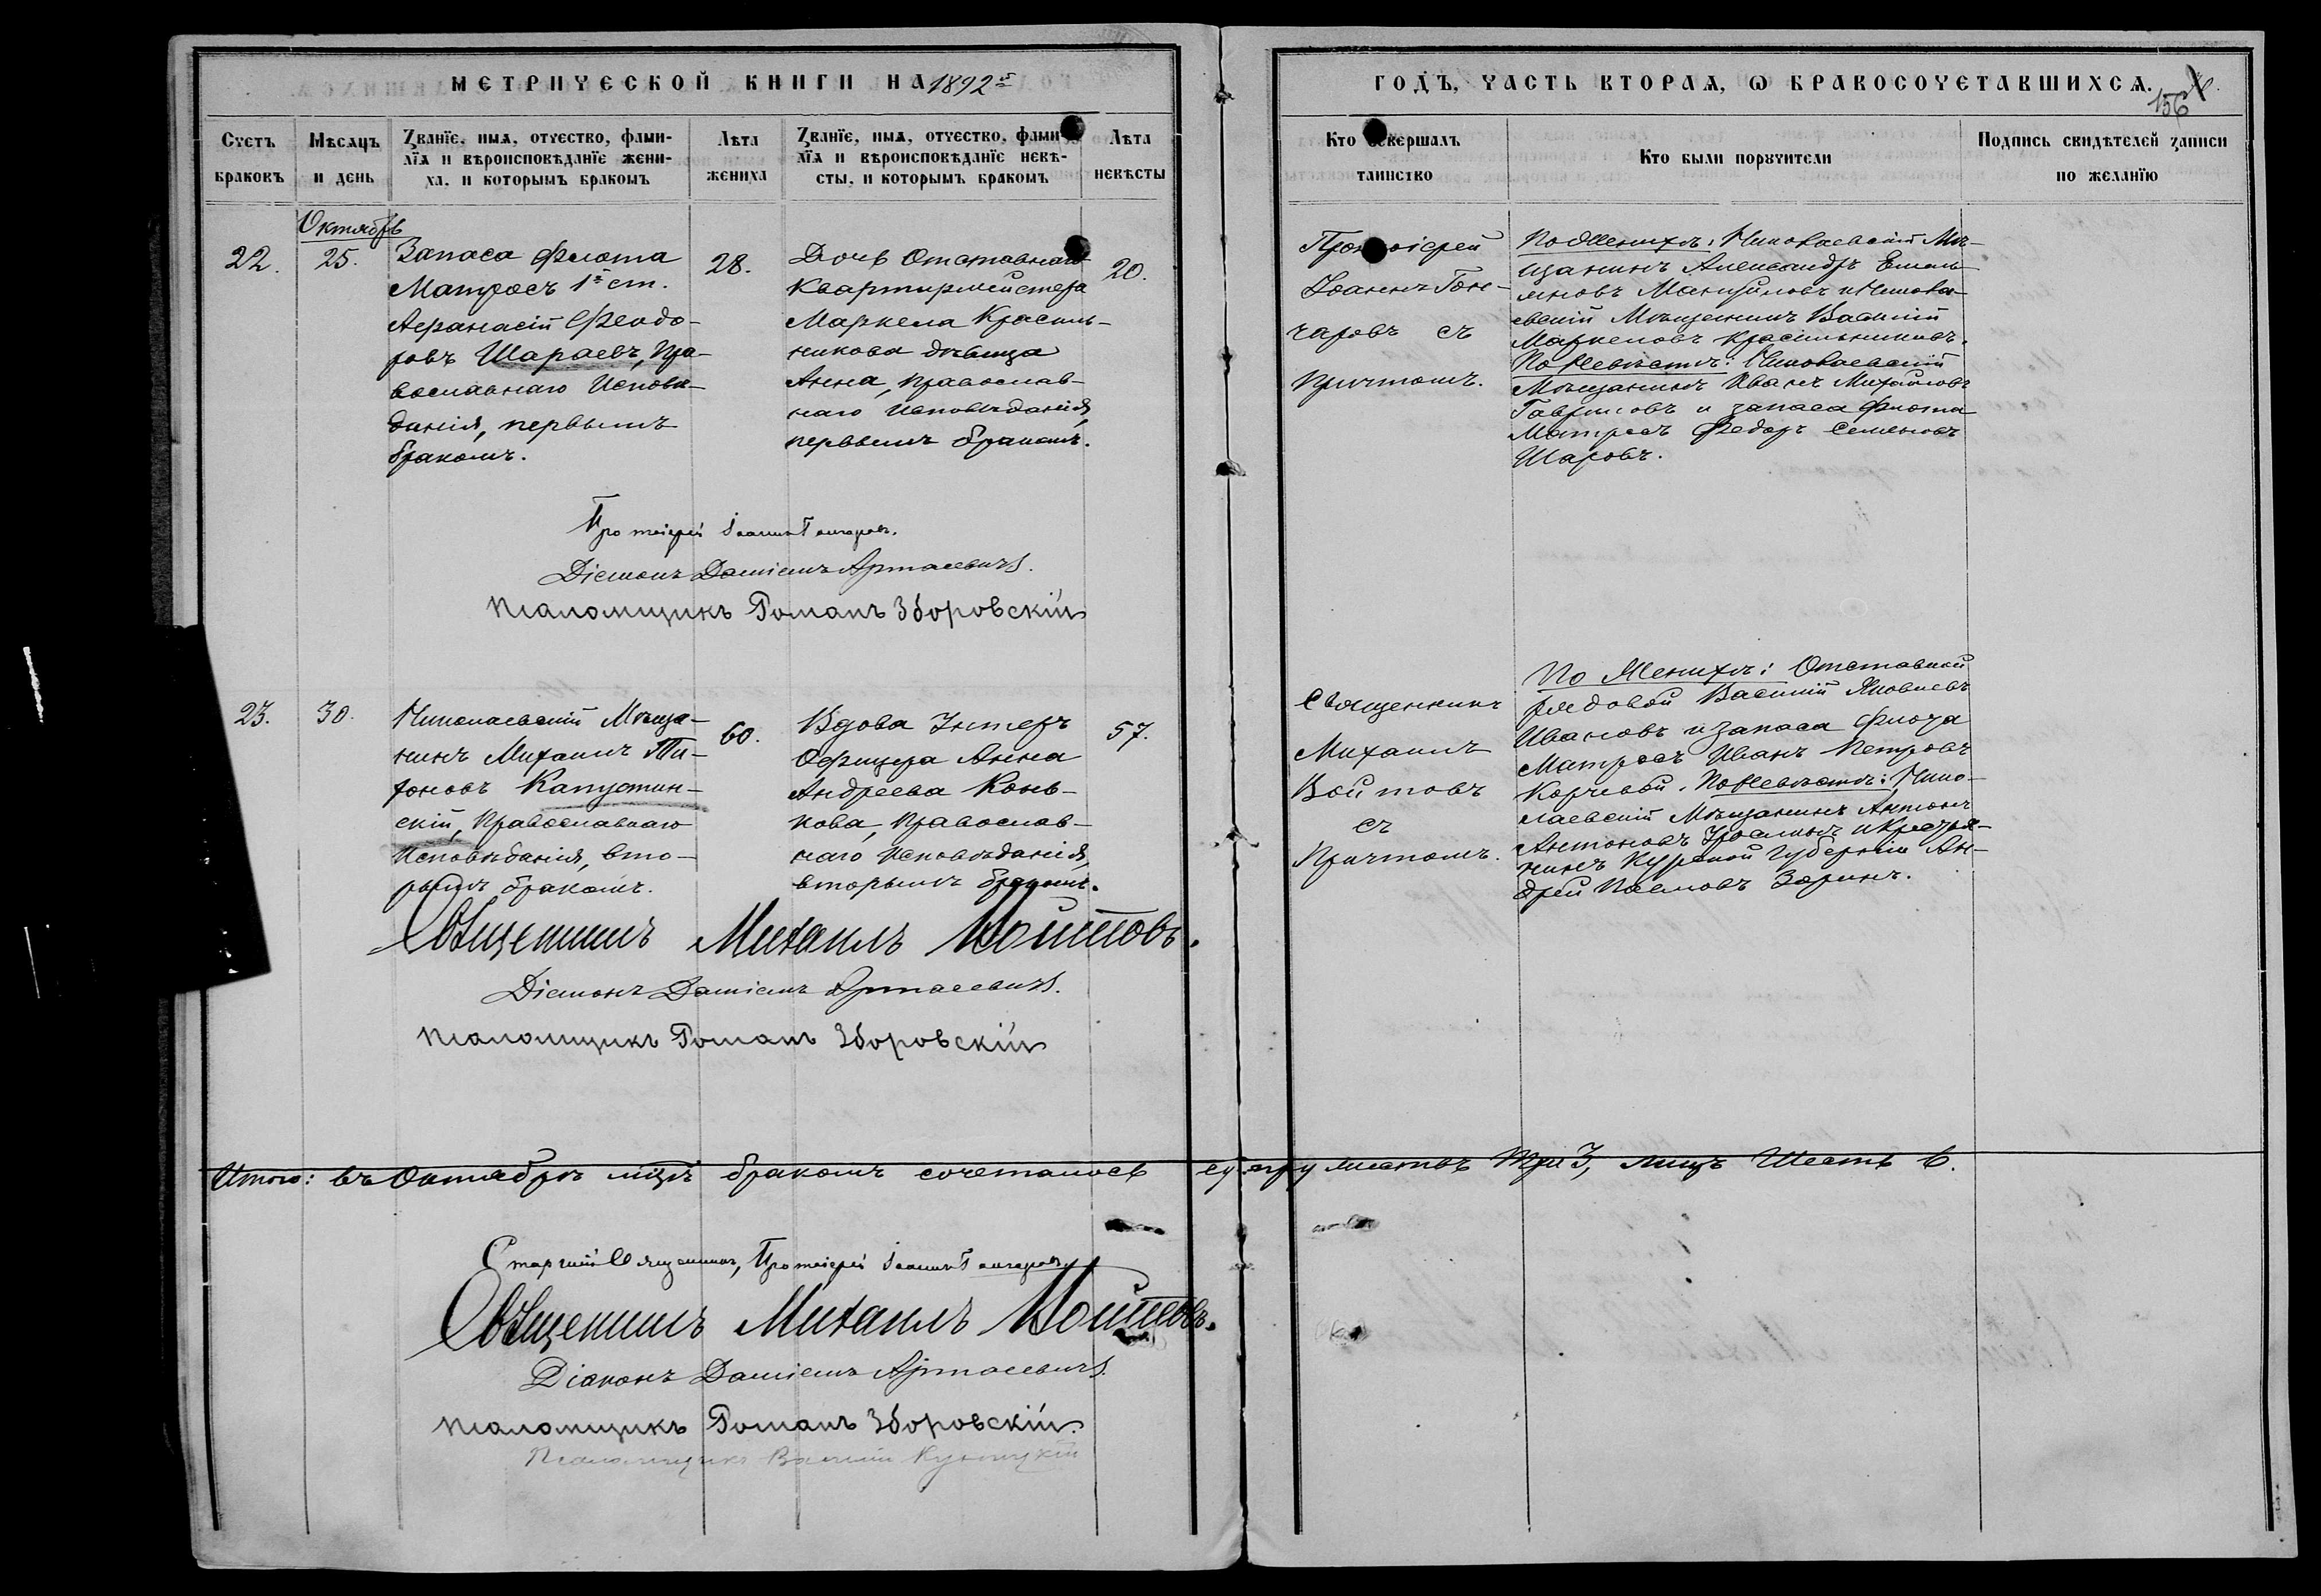 МЕТРИЧЕСКОЙ КНИГИ НА 1892й
ГОДЪ, ЧАСТЬ ВТОРАѦ, Ѡ БРАКОСОЧЕТАВШИХСѦ.
156
Счетъ браковъ
Мѣсѧцъ и день
Званїе, имѧ, отчество, фами-
лїѧ и вѣроисповѣданїе жени-
ха, и которымъ бракомъ
Лѣта жениха
Званїе, имѧ, отчество, фами-
лїѧ и вѣроисповѣданїе невѣ-
сты, и которымъ бракомъ
Лѣта невѣсты
Кто совершалъ таинство
Кто были порꙋчители
Подпись свидѣтелей записи
по желанїю
Октябрь
22.
25.
Запаса флота
Матросъ 1й ст.
Афанасій Феодо-
ровъ Шараевъ, пра-
вославнаго Исповѣ-
данія, первымъ
бракомъ.
28.
Дочь Отставнаго
Квартирмейстера
Маркела Красиль-
никова дѣвица
Анна, православ-
наго Исповѣданія,
первымъ бракомъ.
20.
Протоіерей
Іоаннъ Гон-
чаровъ съ
Причтомъ.
По Женихѣ: Николаевскій Мѣ-
щанинъ Александръ Емель-
яновъ и Никола-
евскій Мѣщанинъ Василій
Маркеловъ Красильниковъ.
По Невѣстѣ: Николаевскій
Мѣщанинъ Иванъ Михайловъ
Гавриловъ и запаса флота
Матросъ Федоръ Семеновъ
Шаровъ.
Протоіерей Іоаннъ Гончаровъ.
Діаконъ Даміанъ Артасевичъ.
Псаломщикъ Романъ Зборовскій
23.
30.
Николаевскій Мѣща-
нинъ Михаилъ Ти-
хоновъ Капустин-
скій, Православнаго
Исповѣданія, вто-
рымъ бракомъ.
60.
Вдова Унтеръ
Офицера Анна
Андреева Конь-
кова, Православ-
наго Исповѣданія,
вторымъ бракомъ.
57.
Священникъ
Михаилъ
Войтовъ
съ
Причтомъ.
По Женихѣ: Отставной
рядовой Василій Яковлевъ
Ивановъ и запаса флота
Матросъ Иванъ Петровъ
Корчевой. По Невѣстѣ: Нико-
лаевскій Мѣщанинъ Антонъ
Антоновъ и Крестья-
нинъ Курской губерніи Ан-
дрей Павловъ Заринъ.
Священникъ Михаилъ Войтовъ.
Діаконъ Даміанъ Артасевичъ.
Псаломщикъ Романъ Зборовскій
Итого: въ Октябрѣ мцѣ бракомъ сочеталось супружествъ три 3, лицъ Шесть 6.
Старшій Священникъ, Протоіерей Іоаннъ Гончаровъ
Священникъ Михаилъ Войтовъ.
Діаконъ Даміанъ Артасевичъ.
Псаломщикъ Романъ Зборовскій.
Псаломщикъ Василій